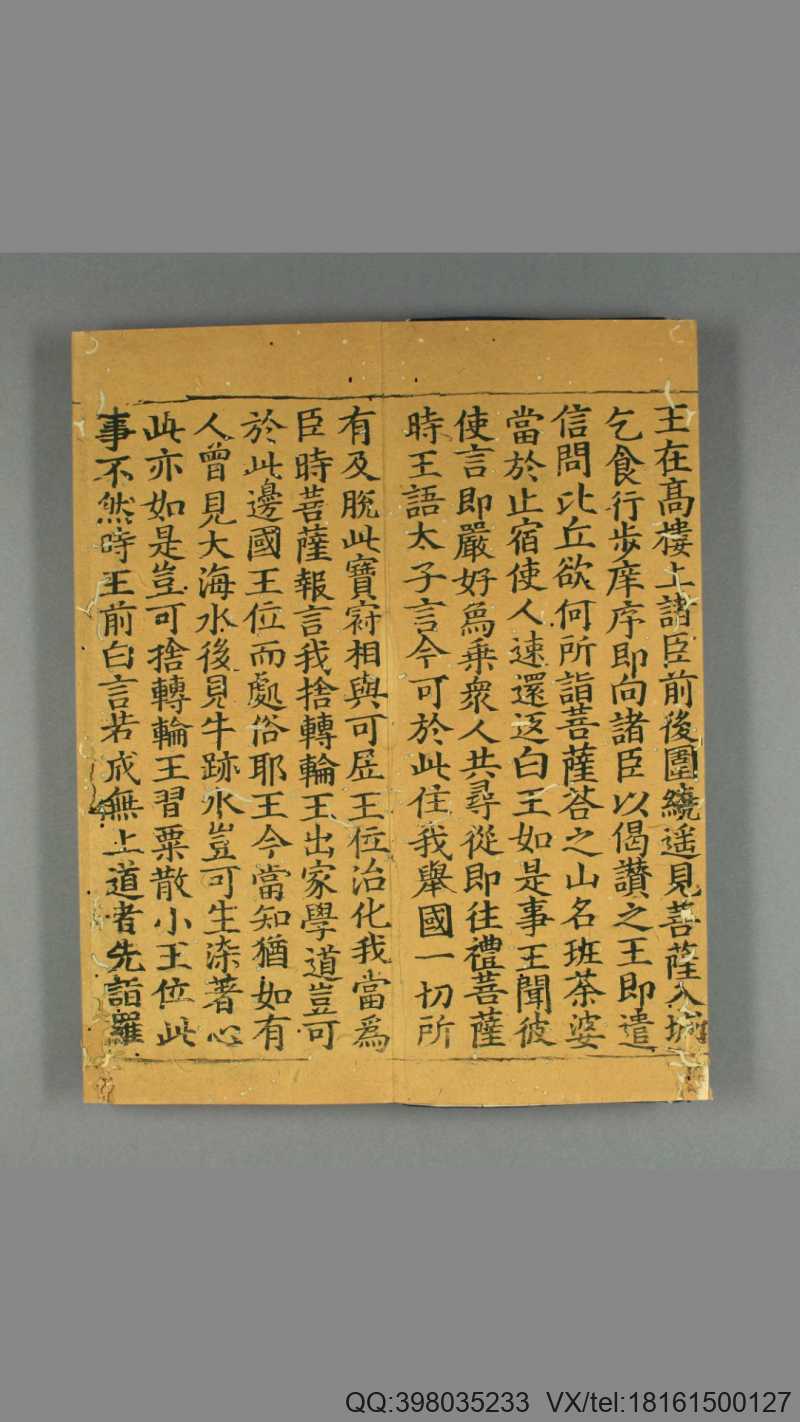 王在高樓上諸臣前後圍繞遥見菩薩入城
乞食行步庠序即向諸臣以偈讃之王即遣
信問比丘欲何所詣菩薩荅之山名班荼婆
當於止宿使人速還返白王如是事王聞彼
使言即嚴好為乘衆人共尋從即往禮菩薩
時王語太子言今可於此住我舉國一切所
有及脫此寳冠相與可居王位治化我當為
臣時菩薩報言我捨轉輪王出家學道豈可
於此邊國王位而處俗耶王今當知猶如有
人曾見大海水後見牛跡水豈可生染著心
此亦如是豈可捨轉輪王習粟散小王位此
事不然時王前白言若成無上道者先詣羅
QQ:398035233 VX/tel:18161500127